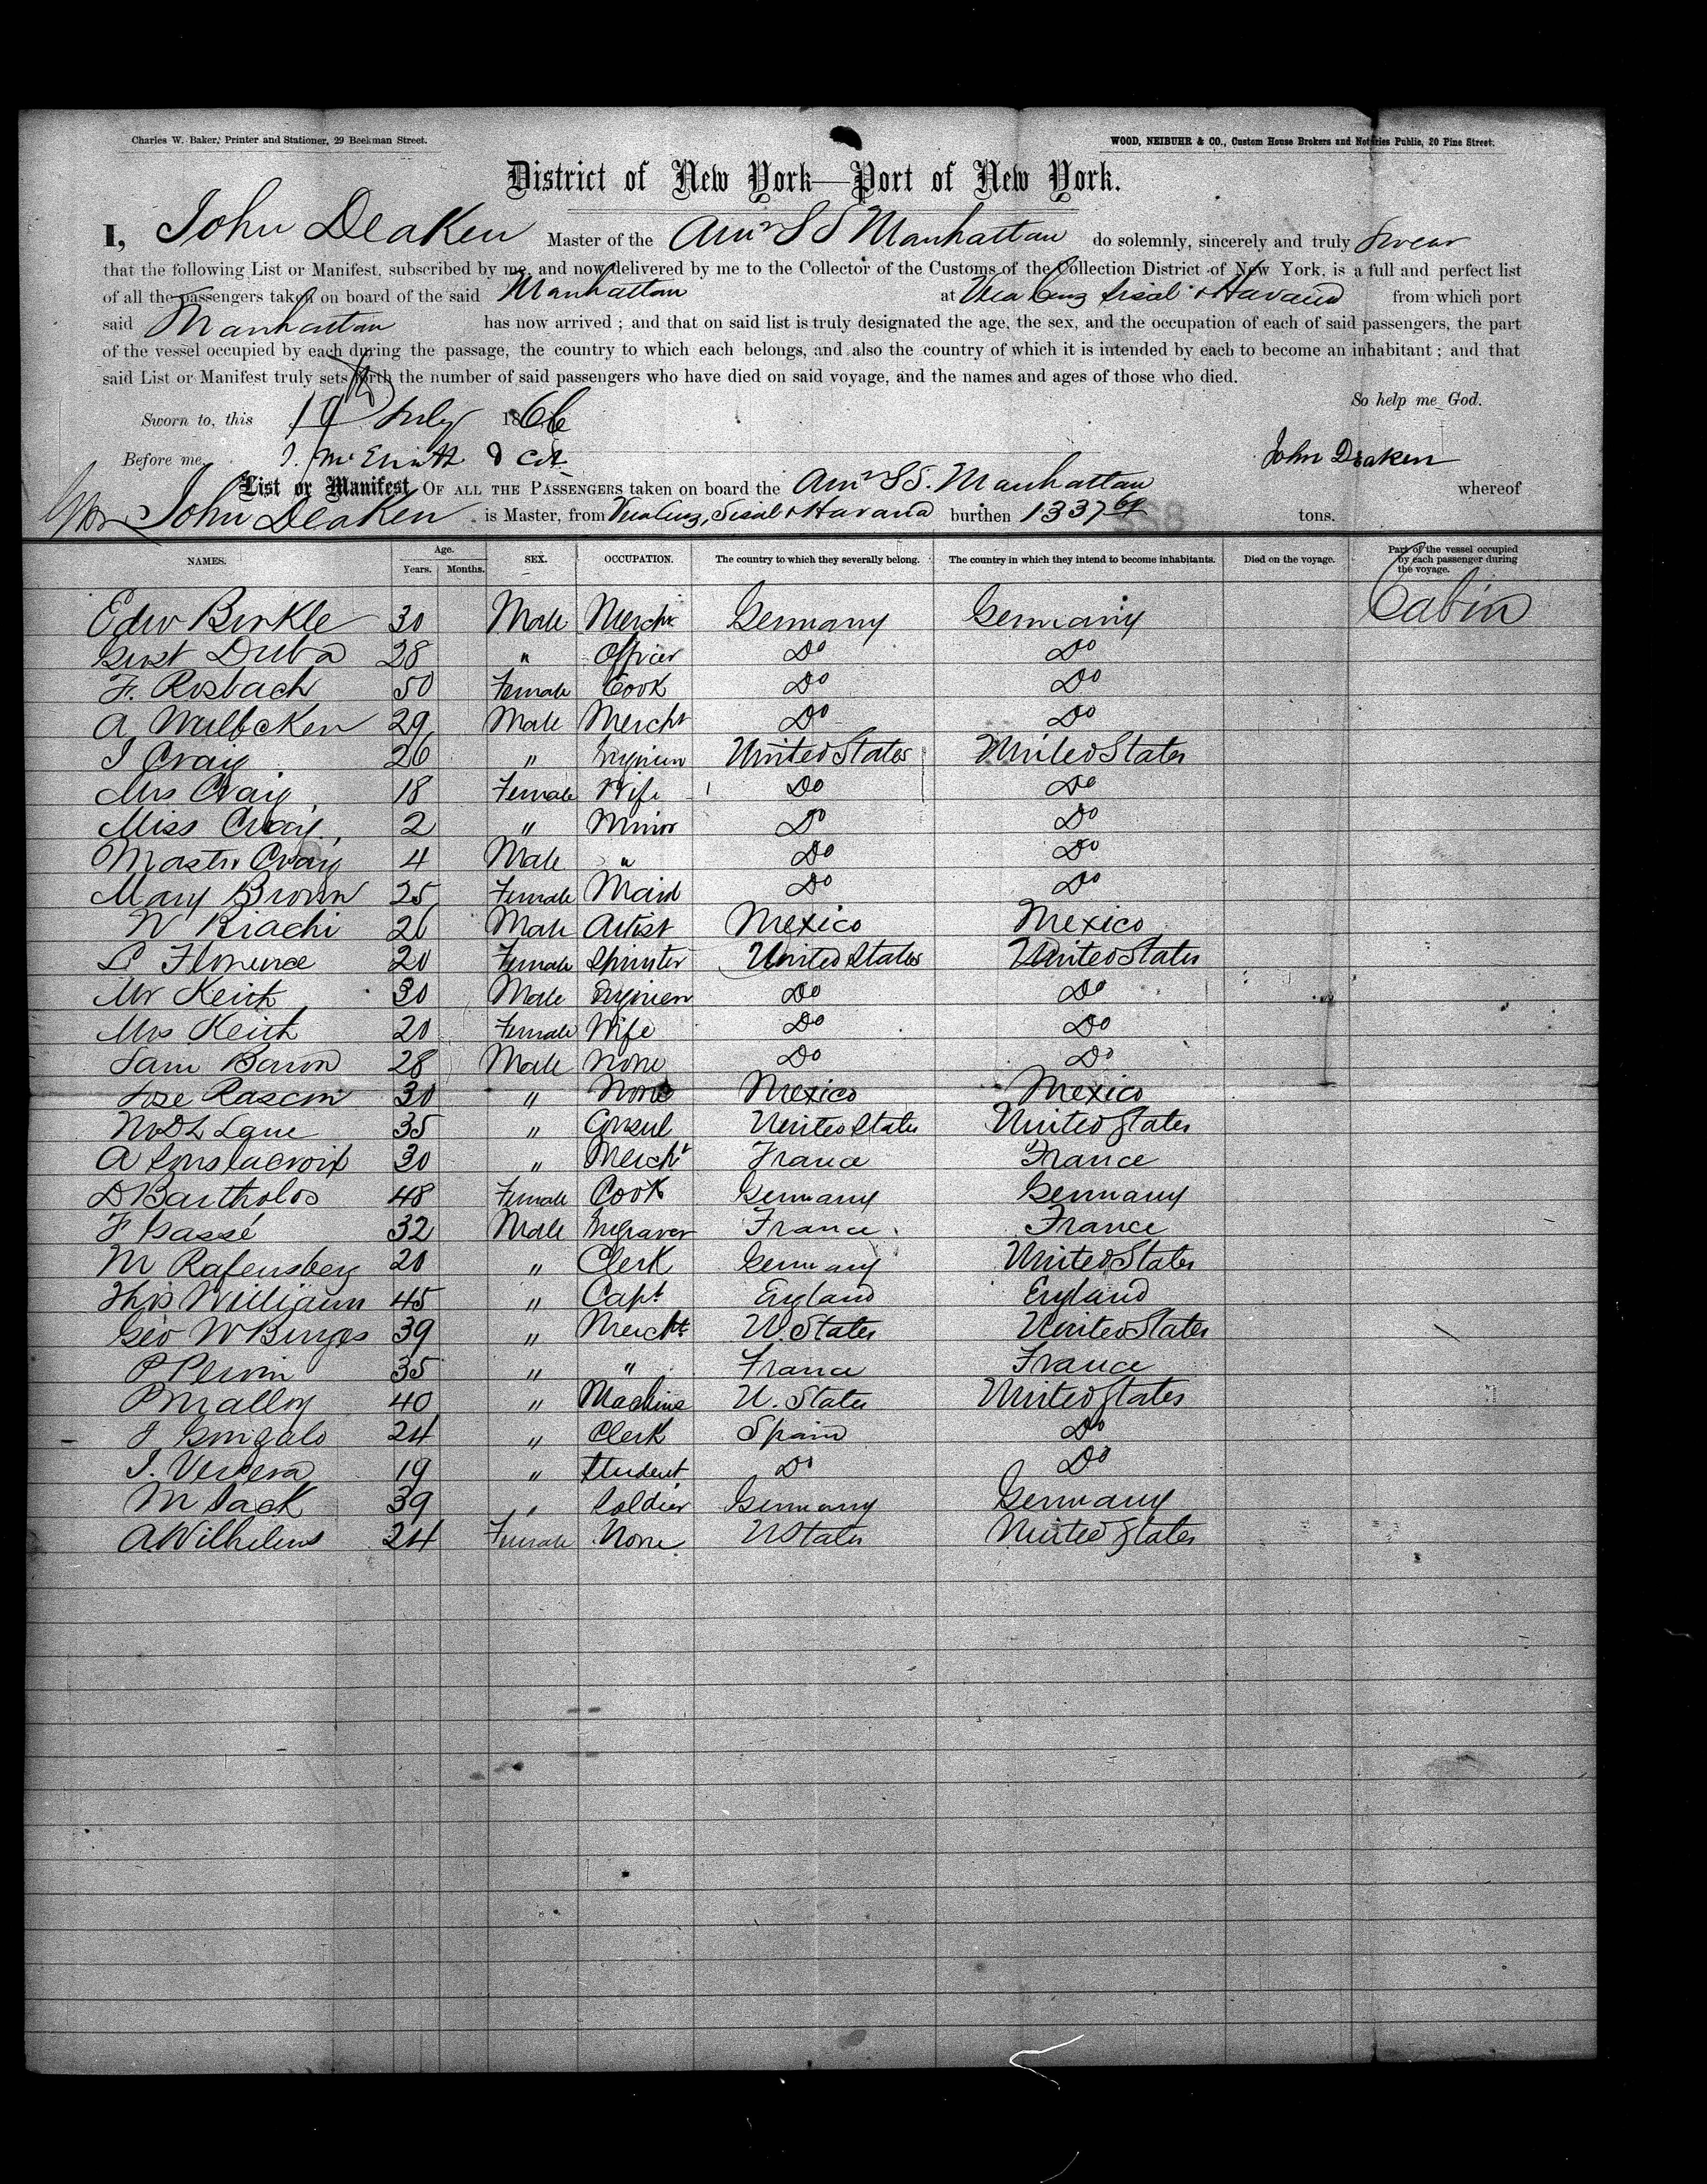 Charles W. Baker, Printer and Stationer, 29 Beekman Street. WOOD, NEIBUHR & CO., Custom House Brokers and Notaries Public, 20 Pine Street.
District of New York—Port of New York.
I, John Deaken Master of the Amn S S Manhattan do solemnly, sincerely and truly Swear
that the following List or Manifest, subscribed by me, and now delivered by me to the Collector of the Customs of the Collection District of New York, is a full and perfect list
of all the passengers taken on board of the said Manhattan at Vera Cruz Sisal & Havana from which port
said Manhattan has now arrived ; and that on said list is truly designated the age, the sex, and the occupation of each of said passengers, the part
of the vessel occupied by each during the passage, the country to which each belongs, and also the country of which it is intended by each to become an inhabitant ; and that
said List or Manifest truly sets forth the number of said passengers who have died on said voyage, and the names and ages of those who died.
So help me God.
Sworn to, this July 1866
Before me John Deaken
List or Manifest OF ALL THE PASSENGERS taken on board the Amn SS. Manhattan whereof
John Deaken is Master, from Vera Cruz, Sisal & Havana burthen 1337 tons.
NAMES. Age. Years. Months. SEX. OCCUPATION. The country to which they severally belong. The country in which they intend to become inhabitants. Died on the voyage. Part of the vessel occupied by each passenger during the voyage.
Edw Birkle 30 Male Mercht Germany Germany Cabin
Gust Duba 28 " Officer Do Do
F. Rosbach 50 Female Cook Do Do
A 29 Male Mercht Do Do
J Craig 26 " Engineer United States United States
Mrs Craig 18 Female Wife Do Do
Miss Craig 2 " Minor Do Do
Master Craig 4 Male " Do Do
Mary Brown 25 Female Maid Do Do
N Biachi 26 Male Artist Mexico Mexico
L Florence 20 Female Spinster United States United States
Mr Keith 30 Male Engineer Do Do
Mrs Keith 20 Female Wife Do Do
Sam Baron 28 Male None Do Do
Jose Rascon 30 " None Mexico Mexico
Lane 35 " Consul United States United States
A 30 " Mercht France France
D Bartholos 48 Female Cook Germany Germany
F Gassé 32 Male Engraver France France
M Rafensberg 20 " Clerk Germany United States
Thos William 45 " Capt England England
Geo W Burgos 39 " Mercht U. States United States
P Pervin 35 " " France France
P Malloy 40 " Machine U. States United States
J Gonzalo 24 " Clerk Spain Do
J. 19 " Student Do Do
M Sack 39 " Soldier Germany Germany
A Wilhelms 24 Female None U States United States